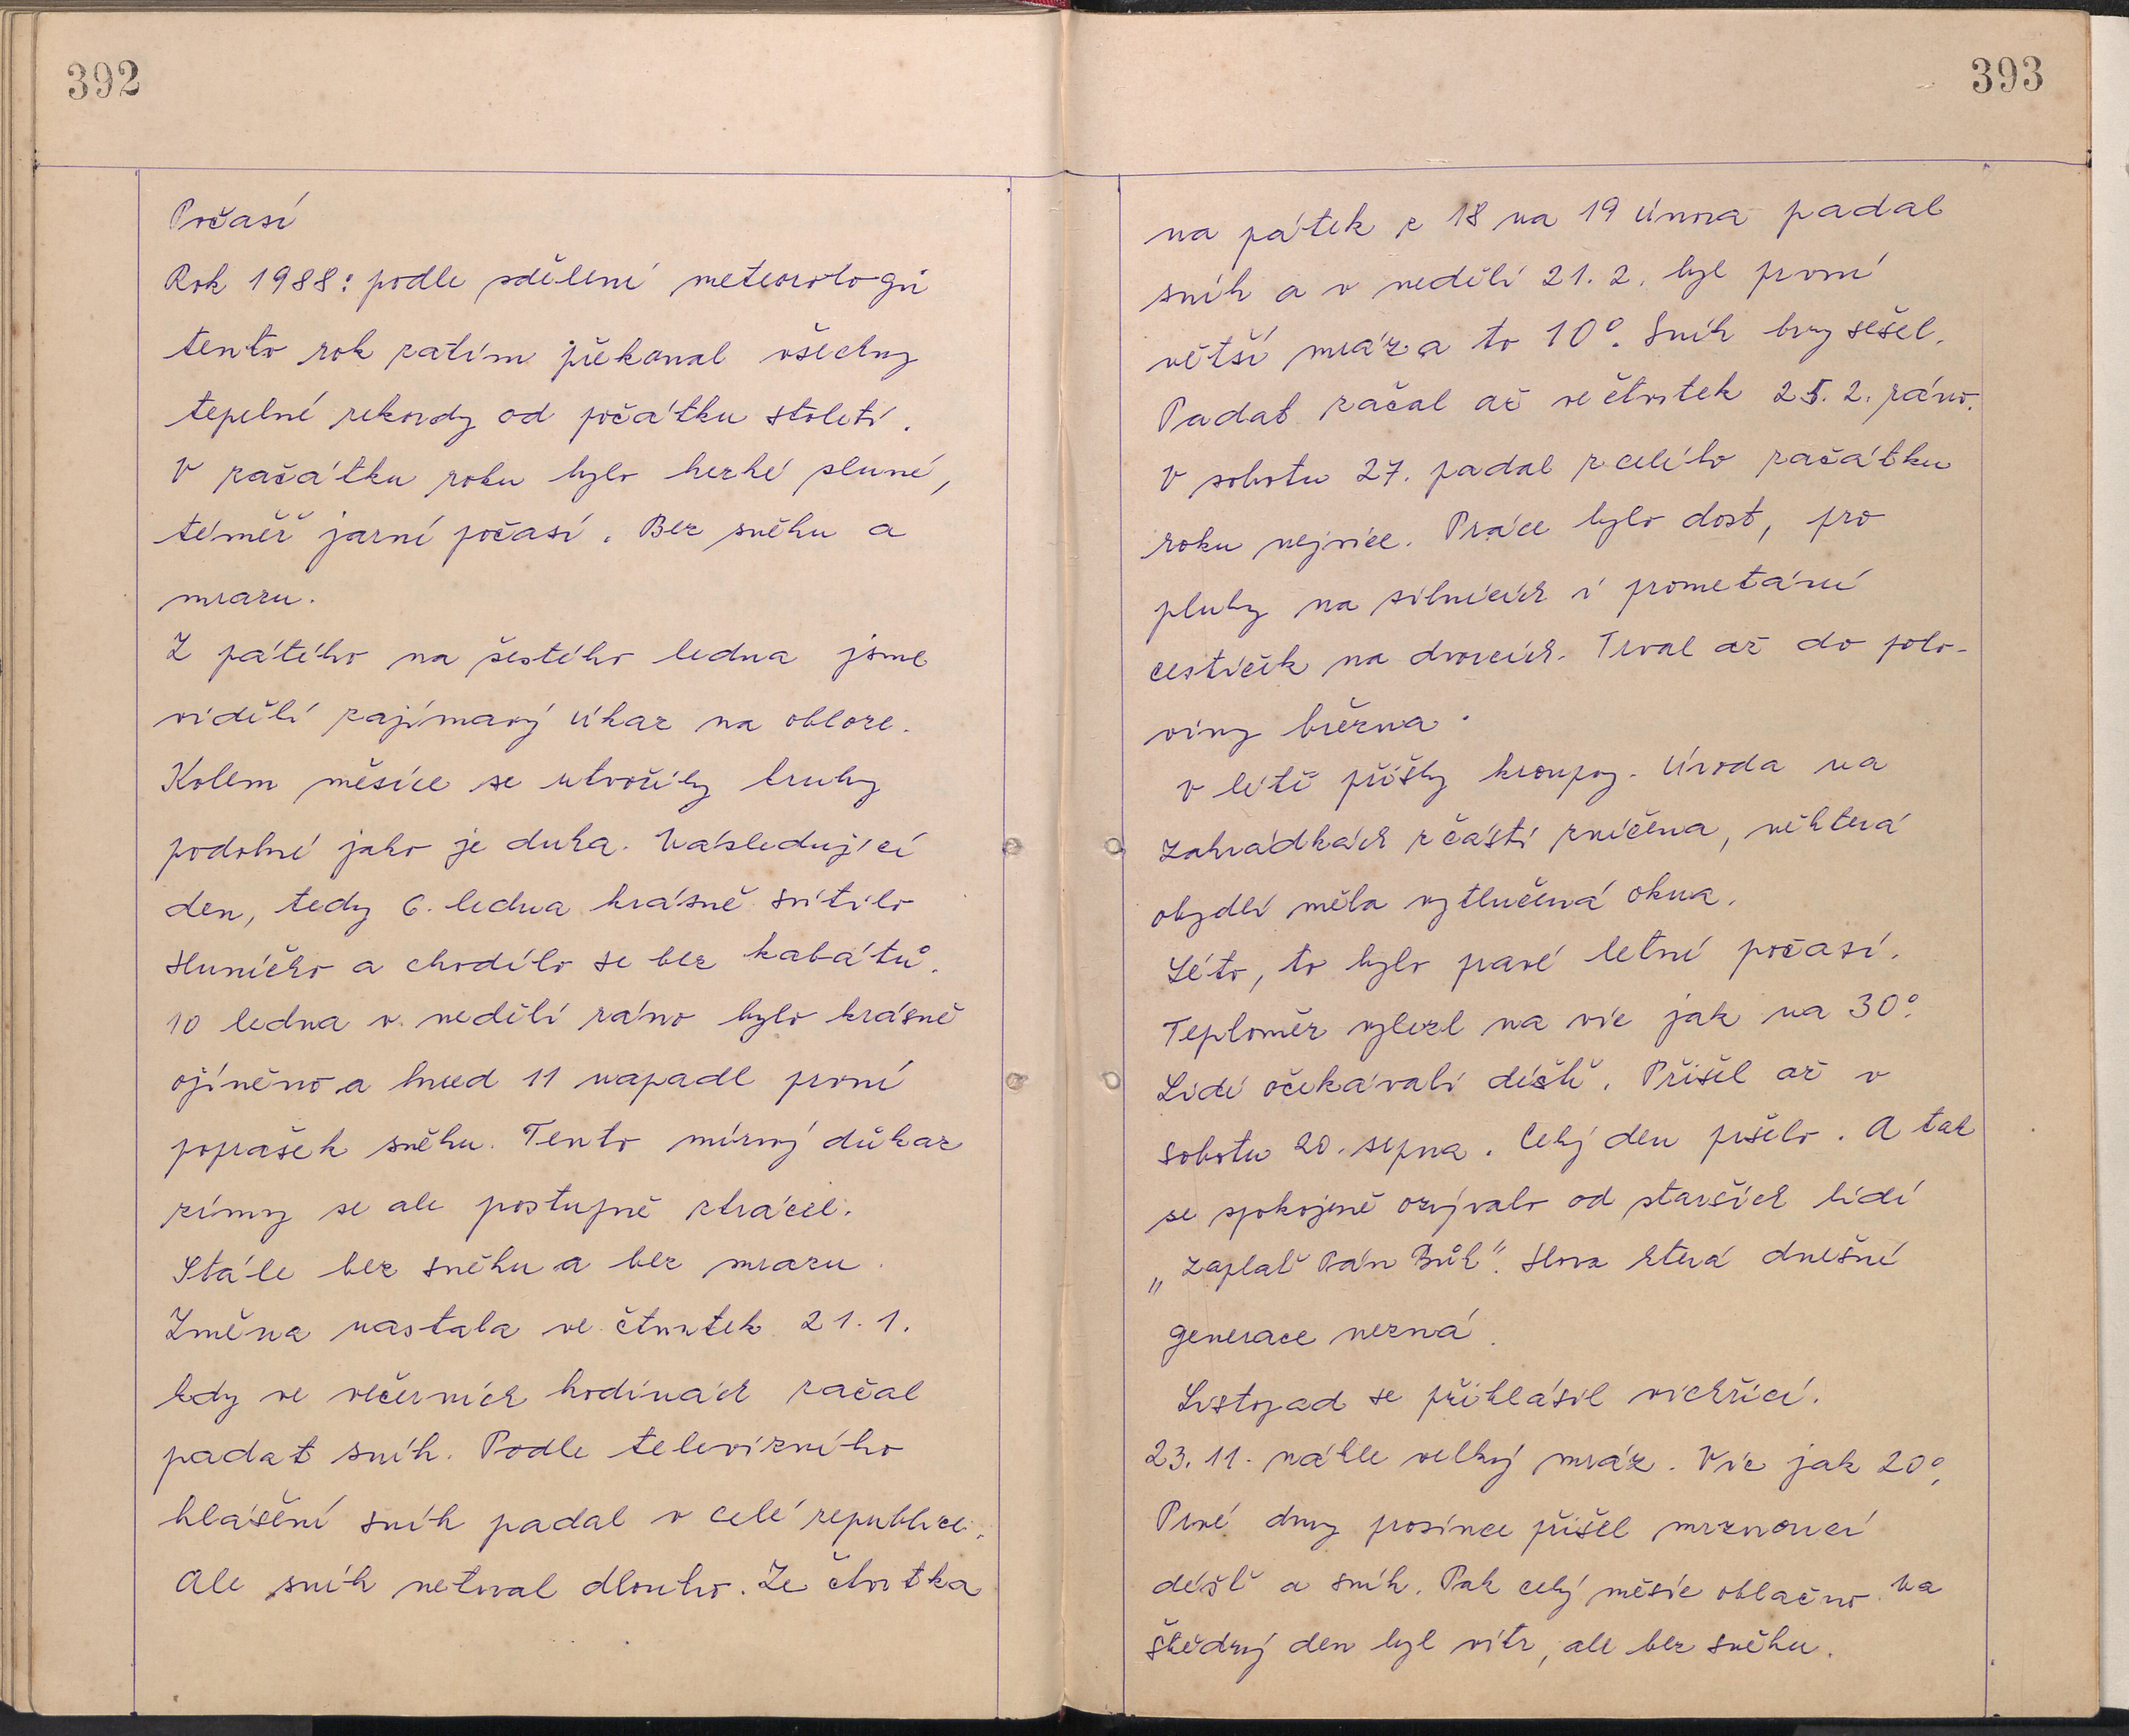 392
Počasí
Rok 1988: podle sdělení meteorologů
tento rok zatím překonal všechny
tepelné rekordy od počátku století.
V začátku roku bylo hezké slunné,
téměř jarní počasí. Bez sněhu a
mrazu.
Z pátého na šestého ledna jsme
viděli zajímavý úkaz na obloze.
Kolem měsíce se utvořily kruhy
podobné jako je duha. Následující
den, tedy 6. ledna krásně svítilo
sluníčko a chodilo se bez kabátů.
10 ledna v neděli ráno bylo krásně
ojíněno a hned 11 napadl první
poprašek sněhu. Tento mírný důkaz
zimy se ale postupně ztrácel.
Stále bez sněhu a bez mrazu.
Změna nastala ve čtvrtek 21.1.
kdy ve večerních hodinách začal
padat sníh. Podle televizního
hlášení sníh padal v celé republice.
Ale sníh netrval dlouho. Ze čtvrtka
393
na pátek z 18 na 19 února padal
sníh a v neděli 21. 2. byl první
větší mráz a to 10°. Sníh brzy sešel.
Padat začal až ve čtvrtek 25. 2. ráno.
V sobotu 27. padal z celého začátku
roku nejvíce. Práce bylo dost, pro
pluhy na silnicích i prometání
cestiček na dvorcích. Trval až do polo-
viny března.
v létě přišly kroupy. Úroda na
zahrádkách z části zničena, některá
obydlí měla vytlučená okna.
Léto, to bylo pravé letní počasí.
Teploměr vylezl na víc jak na 30°.
Lidé očekávali déšť. Přišel až v
Sobotu 20. srpna. Celý den pršelo. A tak
se spokojeně ozývalo od starších lidí
„Zaplať Pán Bůh". Slova která dnešní
generace nezná.
Listopad se přihlásil vichřicí.
23. 11. náhle velký mráz. Víc jak 20°.
Prvé dny prosince přišel mrznoucí
déšť a sníh. Pak celý měsíc oblačno. Na
štědrý den byl vítr, ale bez sněhu.